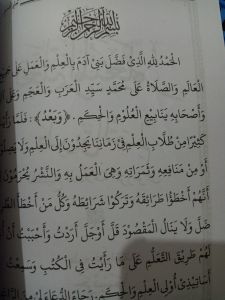 بسم الله الرحمن الرحيم
الحَمْدُ لِلّٰهِ الَّذِيْ فَضَّلَ بَنِيْ آدَمَ بِالْعِلْمِ وَالْعَمَلِ عَلىٰ
العَالَمِ وَالصَّلَاةُ عَلىٰ مُحَمَّدٍ سَيِّدِ العَرَبِ وَالعَجَمِ وَعَلىٰ
وَأَصْحَابِهِ يَنَابِيْعِ العُلُوْمِ وَالْحِكَمِ. ﴿وَبَعْدُ﴾: فَلَمَّا
كَثِيْرًا مِنْ طُلَّابِ العِلْمِ فِيْ زَمَانِنَا يَجِدُّوْنَ إِلَى العِلْمِ وَلَا
أَوْ مِنْ مَنَافِعِهِ وَثَمَرَاتِهِ وَهِيَ العَمَلُ بِهِ وَالنَّشْرُ يُحْرَمُوْنَ
أَنَّهُمْ أَخْطَؤُا طَرَائِقَهُ وَتَرَكُوْا شَرَائِطَهُ وَكُلُّ مَنْ أَخْطَأَ
ضَلَّ وَلَا يَنَالُ المَقْصُوْدَ قَلَّ أَوْجَلَّ أَرَدْتُ وَأَحْبَبْتُ أَنْ
لَهُمْ طَرِيْقَ التَّعَلُّمِ عَلىٰ مَا رَأَيْتُ فِي الْكُتُبِ وَسَمِعْتُ
أَسَاتِيْذِيْ أُوْلِي العِلْمِ وَالْحِكَمِ. رَجَاءَ